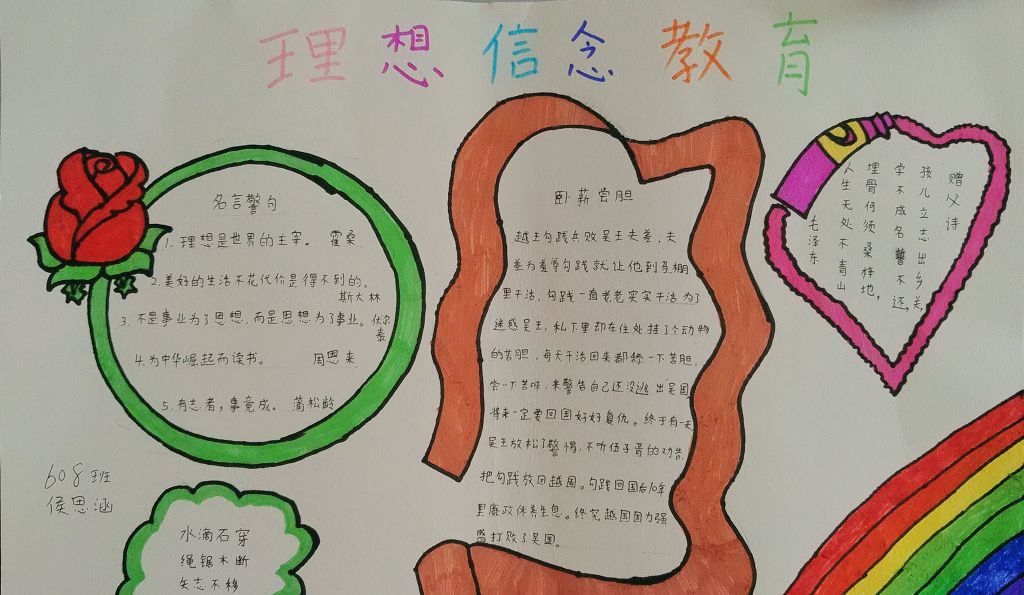 理想信念教育
名言警句
1. 理想是世界的主宰。 霍桑
2. 美好的生活不花代价是得不到的。
斯大林
3. 不是事业为了思想，而是思想为了事业。伏尔
泰
4. 为中华崛起而读书。 周恩来
5. 有志者，事竟成。 蒲松龄
608班
侯思涵
水滴石穿
绳锯木断
矢志不移
卧薪尝胆
越王勾践兵败吴王夫差，夫
差为羞辱勾践就让他到马棚
里干活，勾践一直老老实实干活为了
迷惑吴王，私下里却在住处挂了个动物
的苦胆，每天干活回来都舔一下苦胆，
尝一下苦味，来警告自己还没逃出吴国，
将来一定要回国好好复仇。终于有一天
吴王放松了警惕，不听伍子胥的劝告，
把勾践放回越国。勾践回国后10年
里廉政休养生息。终究越国国力强
盛打败了吴国。
赠父诗
孩儿立志出乡关，
学不成名誓不还。
埋骨何须桑梓地，
人生无处不青山
毛泽东